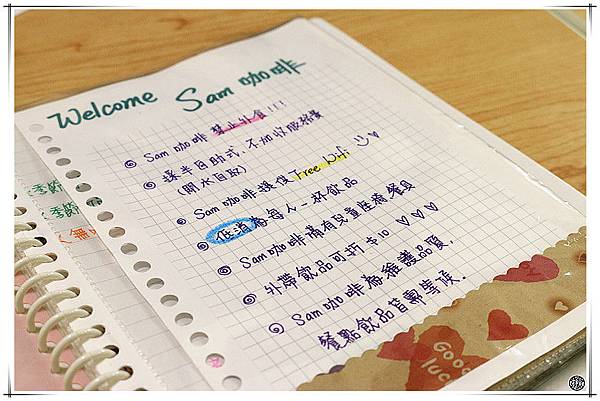 Welcome Sam 咖啡
Sam 咖啡 禁止外食!!!
採半自助式，不加收服務費
(開水自取)
Sam 咖啡提供了Free Wifi
低消為每人一杯飲品
Sam 咖啡備有兒童座椅餐具
外帶飲品可折$10
Sam 咖啡為維護品質，
餐點飲品皆需等候.
季節
季節
Good
luc